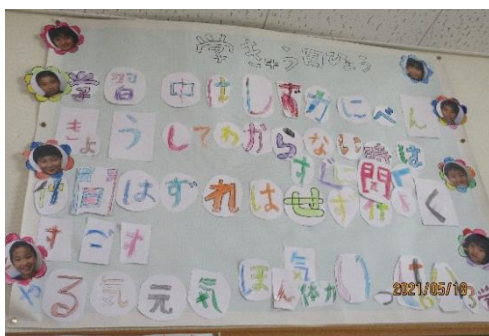 学きゅう目ひょう
学習中はしずかにべん
きょうしてわからない時は
すぐに聞く
仲間はずれはせず行よく
すごす
やる気元気ほん気
2021/05/10